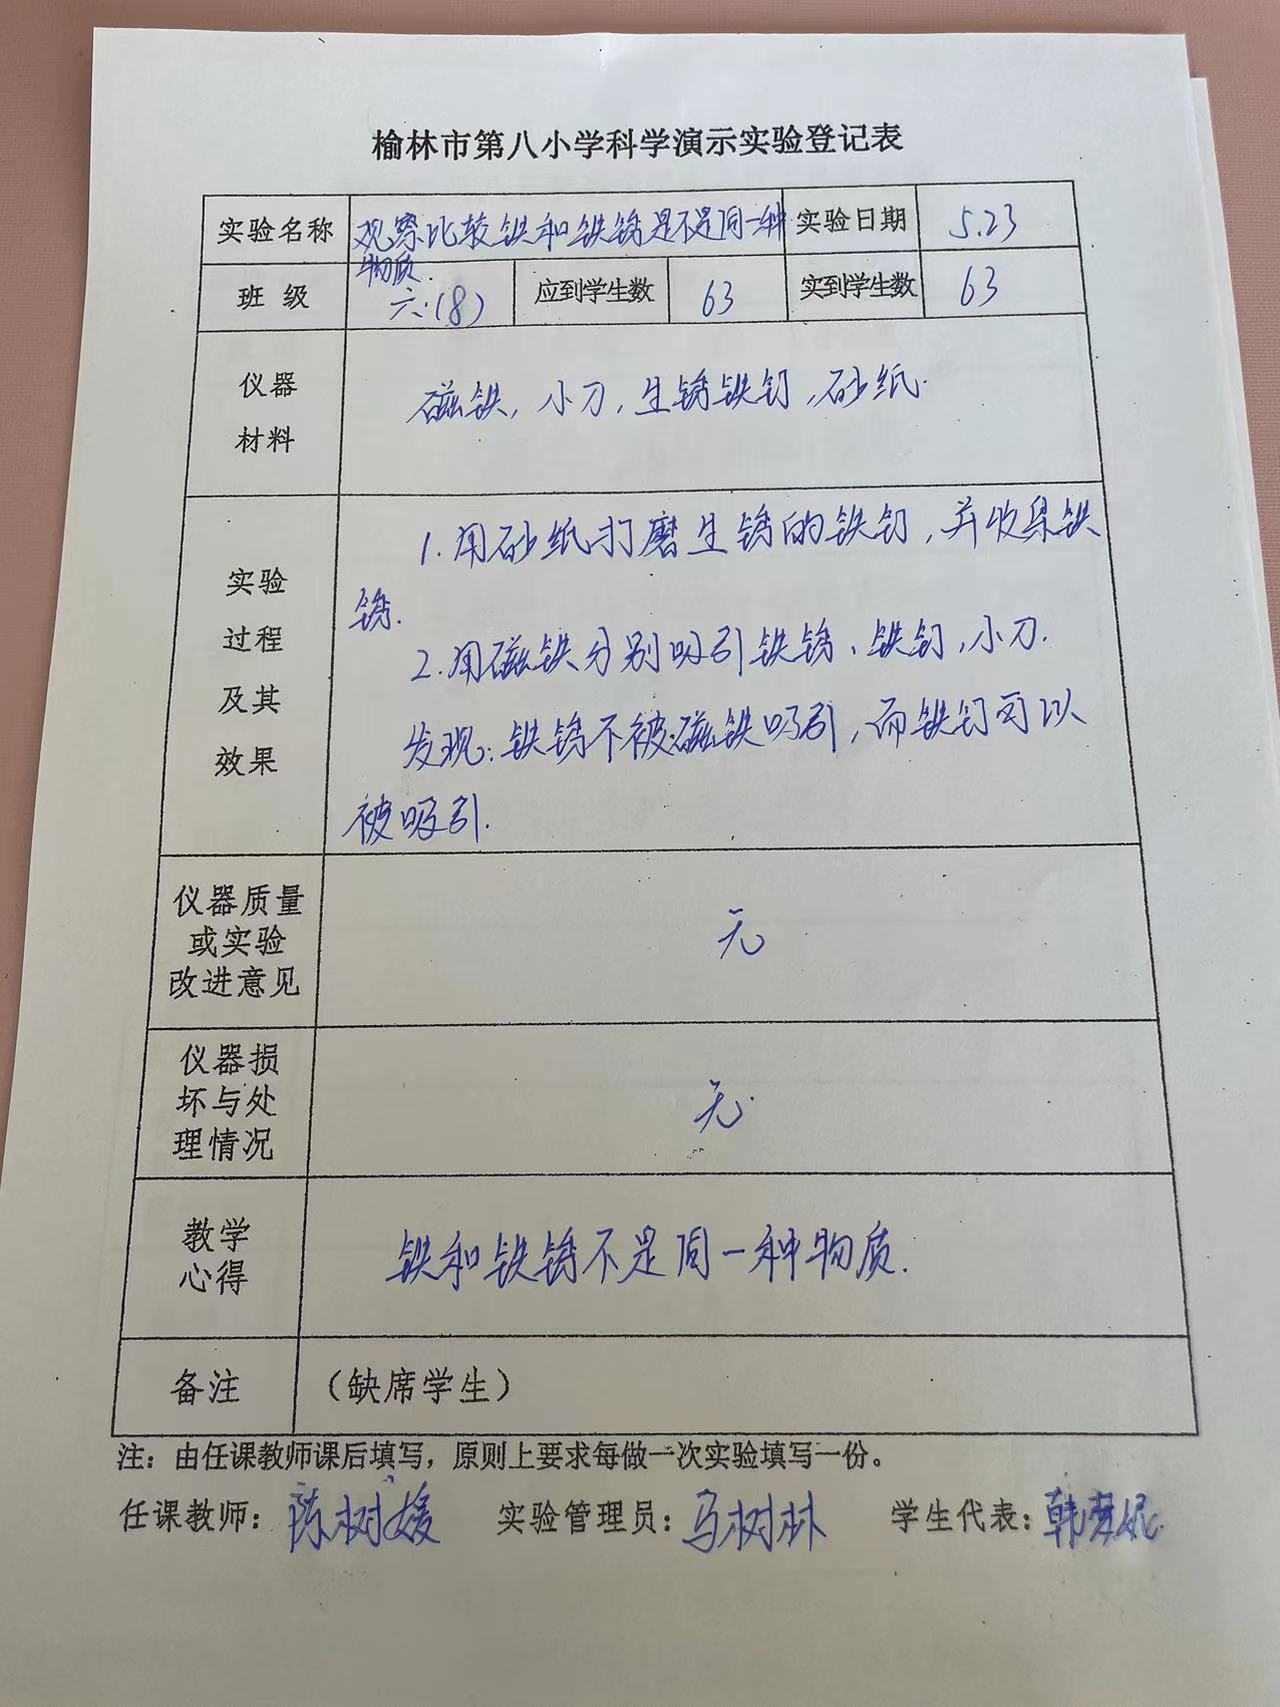 榆林市第八小学科学演示实验登记表
实验名称 观察比较铁和铁锈是不是同一种物质. 实验日期 5.23
班 级 六.(8) 应到学生数 63 实到学生数 63
仪器
材料
磁铁, 小刀, 生锈铁钉, 砂纸.
实验
过程
及其
效果
1. 用砂纸打磨生锈的铁钉, 并收集铁
锈.
2. 用磁铁分别吸引铁锈、铁钉, 小刀.
发现: 铁锈不被磁铁吸引, 而铁钉可以
被吸引.
仪器质量
或实验
改进意见
无
仪器损
坏与处
理情况
无.
教学
心得
铁和铁锈不是同一种物质.
备注 (缺席学生)
注: 由任课教师课后填写, 原则上要求每做一次实验填写一份。
任课教师: 陈树媛 实验管理员: 马树林 学生代表: 韩